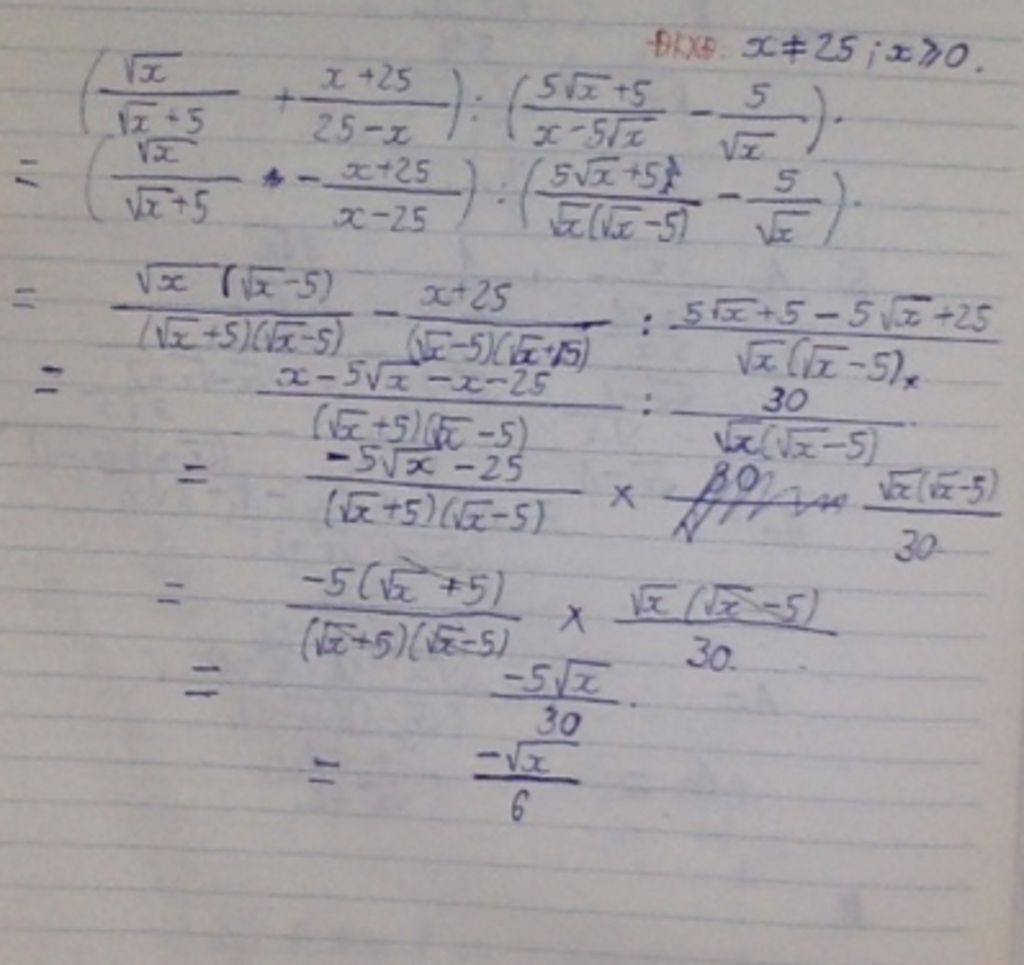 ĐKXĐ: x ≠ 25 ; x ≥ 0.
(√x/(√x + 5) + (x + 25)/(25 - x)) : ((5√x + 5)/(x - 5√x) - 5/√x).
= (√x/(√x + 5) - (x + 25)/(x - 25)) : ((5√x + 5)/(√x(√x - 5)) - 5/√x).
= √x (√x - 5)/((√x + 5)(√x - 5)) - (x + 25)/((√x - 5)(√x + 5)) : (5√x + 5 - 5√x + 25)/(√x(√x - 5))
= (x - 5√x - x - 25)/((√x + 5)(√x - 5)) : 30/(√x(√x - 5))
= (-5√x - 25)/((√x + 5)(√x - 5)) × √x(√x - 5)/30
= -5(√x + 5)/((√x + 5)(√x - 5)) × √x(√x - 5)/30.
= -5√x/30.
= -√x/6